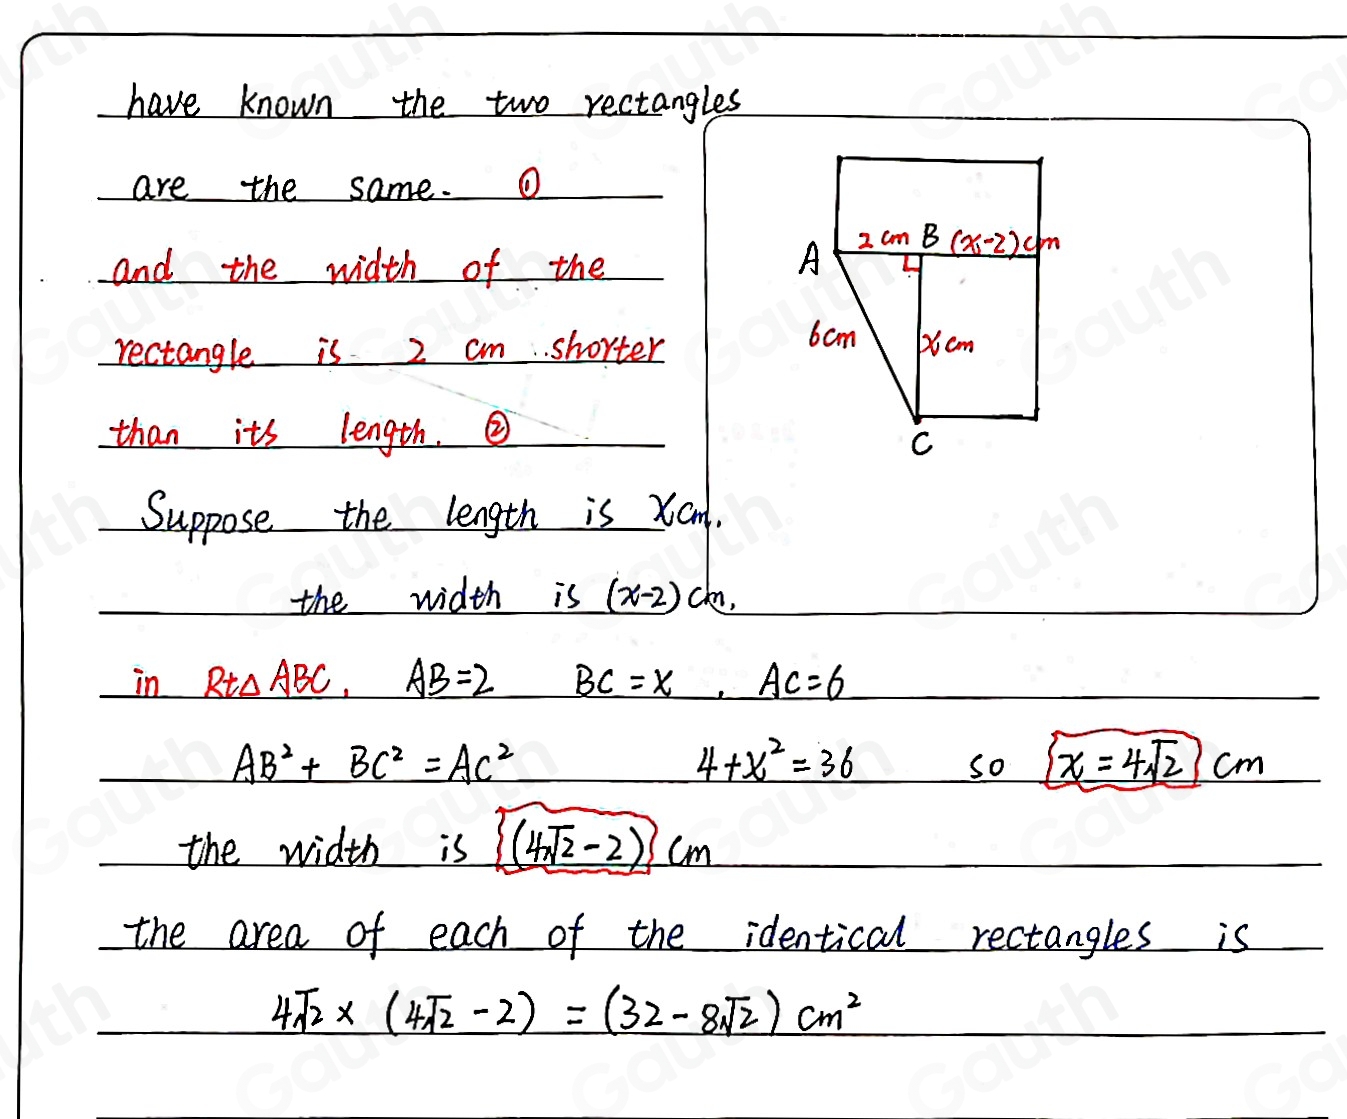 have known the two rectangles
are the same. ①
and the width of the
rectangle is 2 cm shorter
than its length. ②
Suppose the length is x cm.
the width is (x-2) cm.
A
2 cm B (x-2) cm
6cm
x cm
C
in Rt△ ABC, AB=2 BC=x, AC=6
AB²+ BC² = AC² 4+x²=36 so x=4√2 cm
the width is (4√2-2) cm
the area of each of the identical rectangles is
4√2 × (4√2-2) = (32-8√2) cm²
Gauth